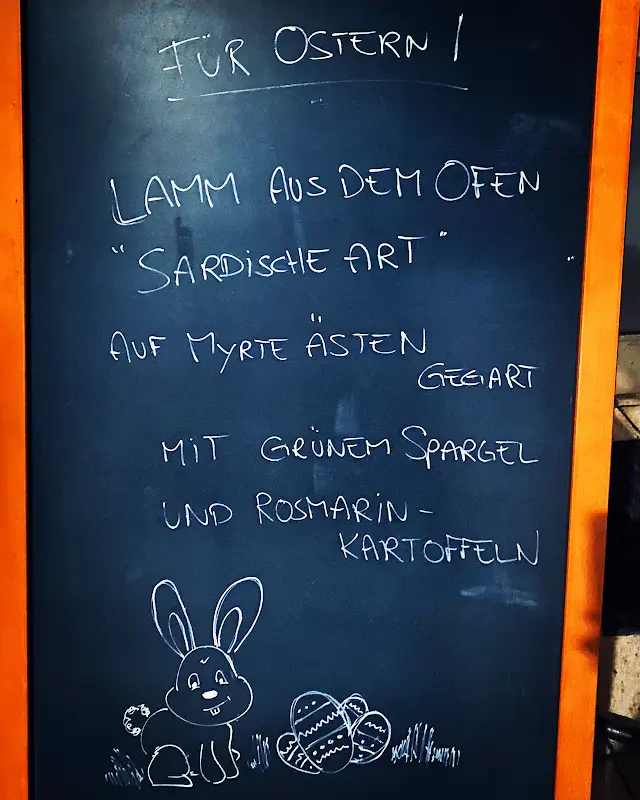 FÜR OSTERN!
LAMM AUS DEM OFEN
"SARDISCHE ART"
AUF MYRTE ÄSTEN
GEGART
MIT GRÜNEM SPARGEL
UND ROSMARIN-
KARTOFFELN